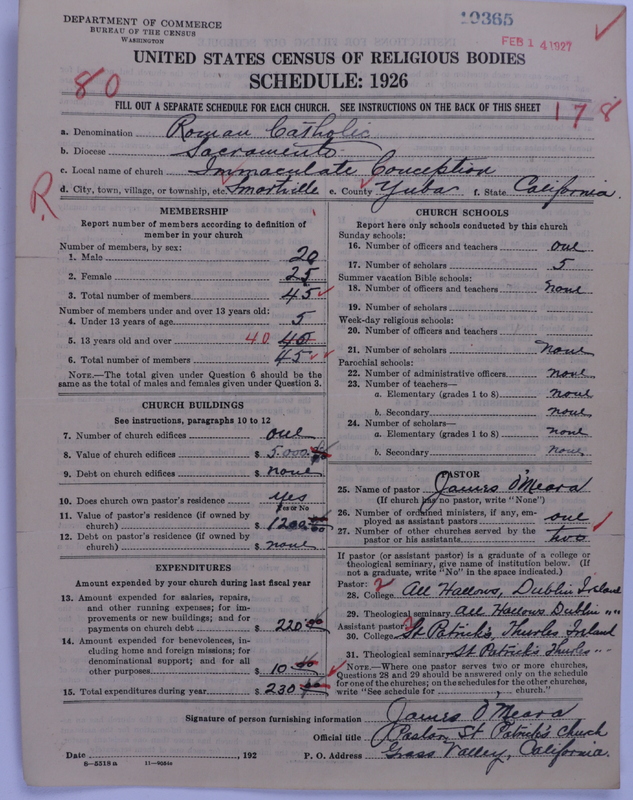 DEPARTMENT OF COMMERCE
BUREAU OF THE CENSUS
WASHINGTON
19365
FEB 14 1927
UNITED STATES CENSUS OF RELIGIOUS BODIES
SCHEDULE: 1926
80
FILL OUT A SEPARATE SCHEDULE FOR EACH CHURCH. SEE INSTRUCTIONS ON THE BACK OF THIS SHEET
178
a. Denomination Roman Catholic
b. Diocese Sacramento
c. Local name of church Immaculate Conception
d. City, town, village, or township, etc. Smartville e. County Yuba f. State California.
R
MEMBERSHIP
Report number of members according to definition of
member in your church
Number of members, by sex:
1. Male 20
2. Female 25
3. Total number of members 45
Number of members under and over 13 years old:
4. Under 13 years of age 5
5. 13 years old and over 40 40
6. Total number of members 45
NOTE.—The total given under Question 6 should be the
same as the total of males and females given under Question 3.
CHURCH BUILDINGS
See instructions, paragraphs 10 to 12
7. Number of church edifices one
8. Value of church edifices $ 5.000
9. Debt on church edifices $ none
10. Does church own pastor's residence yes
Yes or No
11. Value of pastor's residence (if owned by
church) $ 1200 00
12. Debt on pastor's residence (if owned by
church) $ none
EXPENDITURES
Amount expended by your church during last fiscal year
13. Amount expended for salaries, repairs,
and other running expenses; for im-
provements or new buildings; and for
payments on church debt $ 220 00
14. Amount expended for benevolences, in-
cluding home and foreign missions; for
denominational support; and for all
other purposes $ 10 00
15. Total expenditures during year $ 230 00
CHURCH SCHOOLS
Report here only schools conducted by this church
Sunday schools:
16. Number of officers and teachers one
17. Number of scholars 5
Summer vacation Bible schools:
18. Number of officers and teachers none
19. Number of scholars
Week-day religious schools:
20. Number of officers and teachers
21. Number of scholars none
Parochial schools:
22. Number of administrative officers none
23. Number of teachers—
a. Elementary (grades 1 to 8) none
b. Secondary none
24. Number of scholars—
a. Elementary (grades 1 to 8) none
b. Secondary none
PASTOR
25. Name of pastor James O'Meara
(If church has no pastor, write "None")
26. Number of ordained ministers, if any, em-
ployed as assistant pastors one
27. Number of other churches served by the
pastor or his assistants two
If pastor (or assistant pastor) is a graduate of a college or
theological seminary, give name of institution below. (If
not a graduate, write "No" in the space indicated.)
Pastor: 2
28. College All Hallows, Dublin Ireland
29. Theological seminary All Hallows Dublin " "
Assistant pastor:
30. College St Patrick's, Thurles Ireland
31. Theological seminary St Patrick's Thurles " "
NOTE.—Where one pastor serves two or more churches,
Questions 28 and 29 should be answered only on the schedule
for one of the churches; on the schedules for the other churches,
write "See schedule for church."
Signature of person furnishing information James O'Meara
Official title Pastor, St Patrick's Church
Date , 192 P. O. Address Grass Valley, California.
8—5518a 11—9084